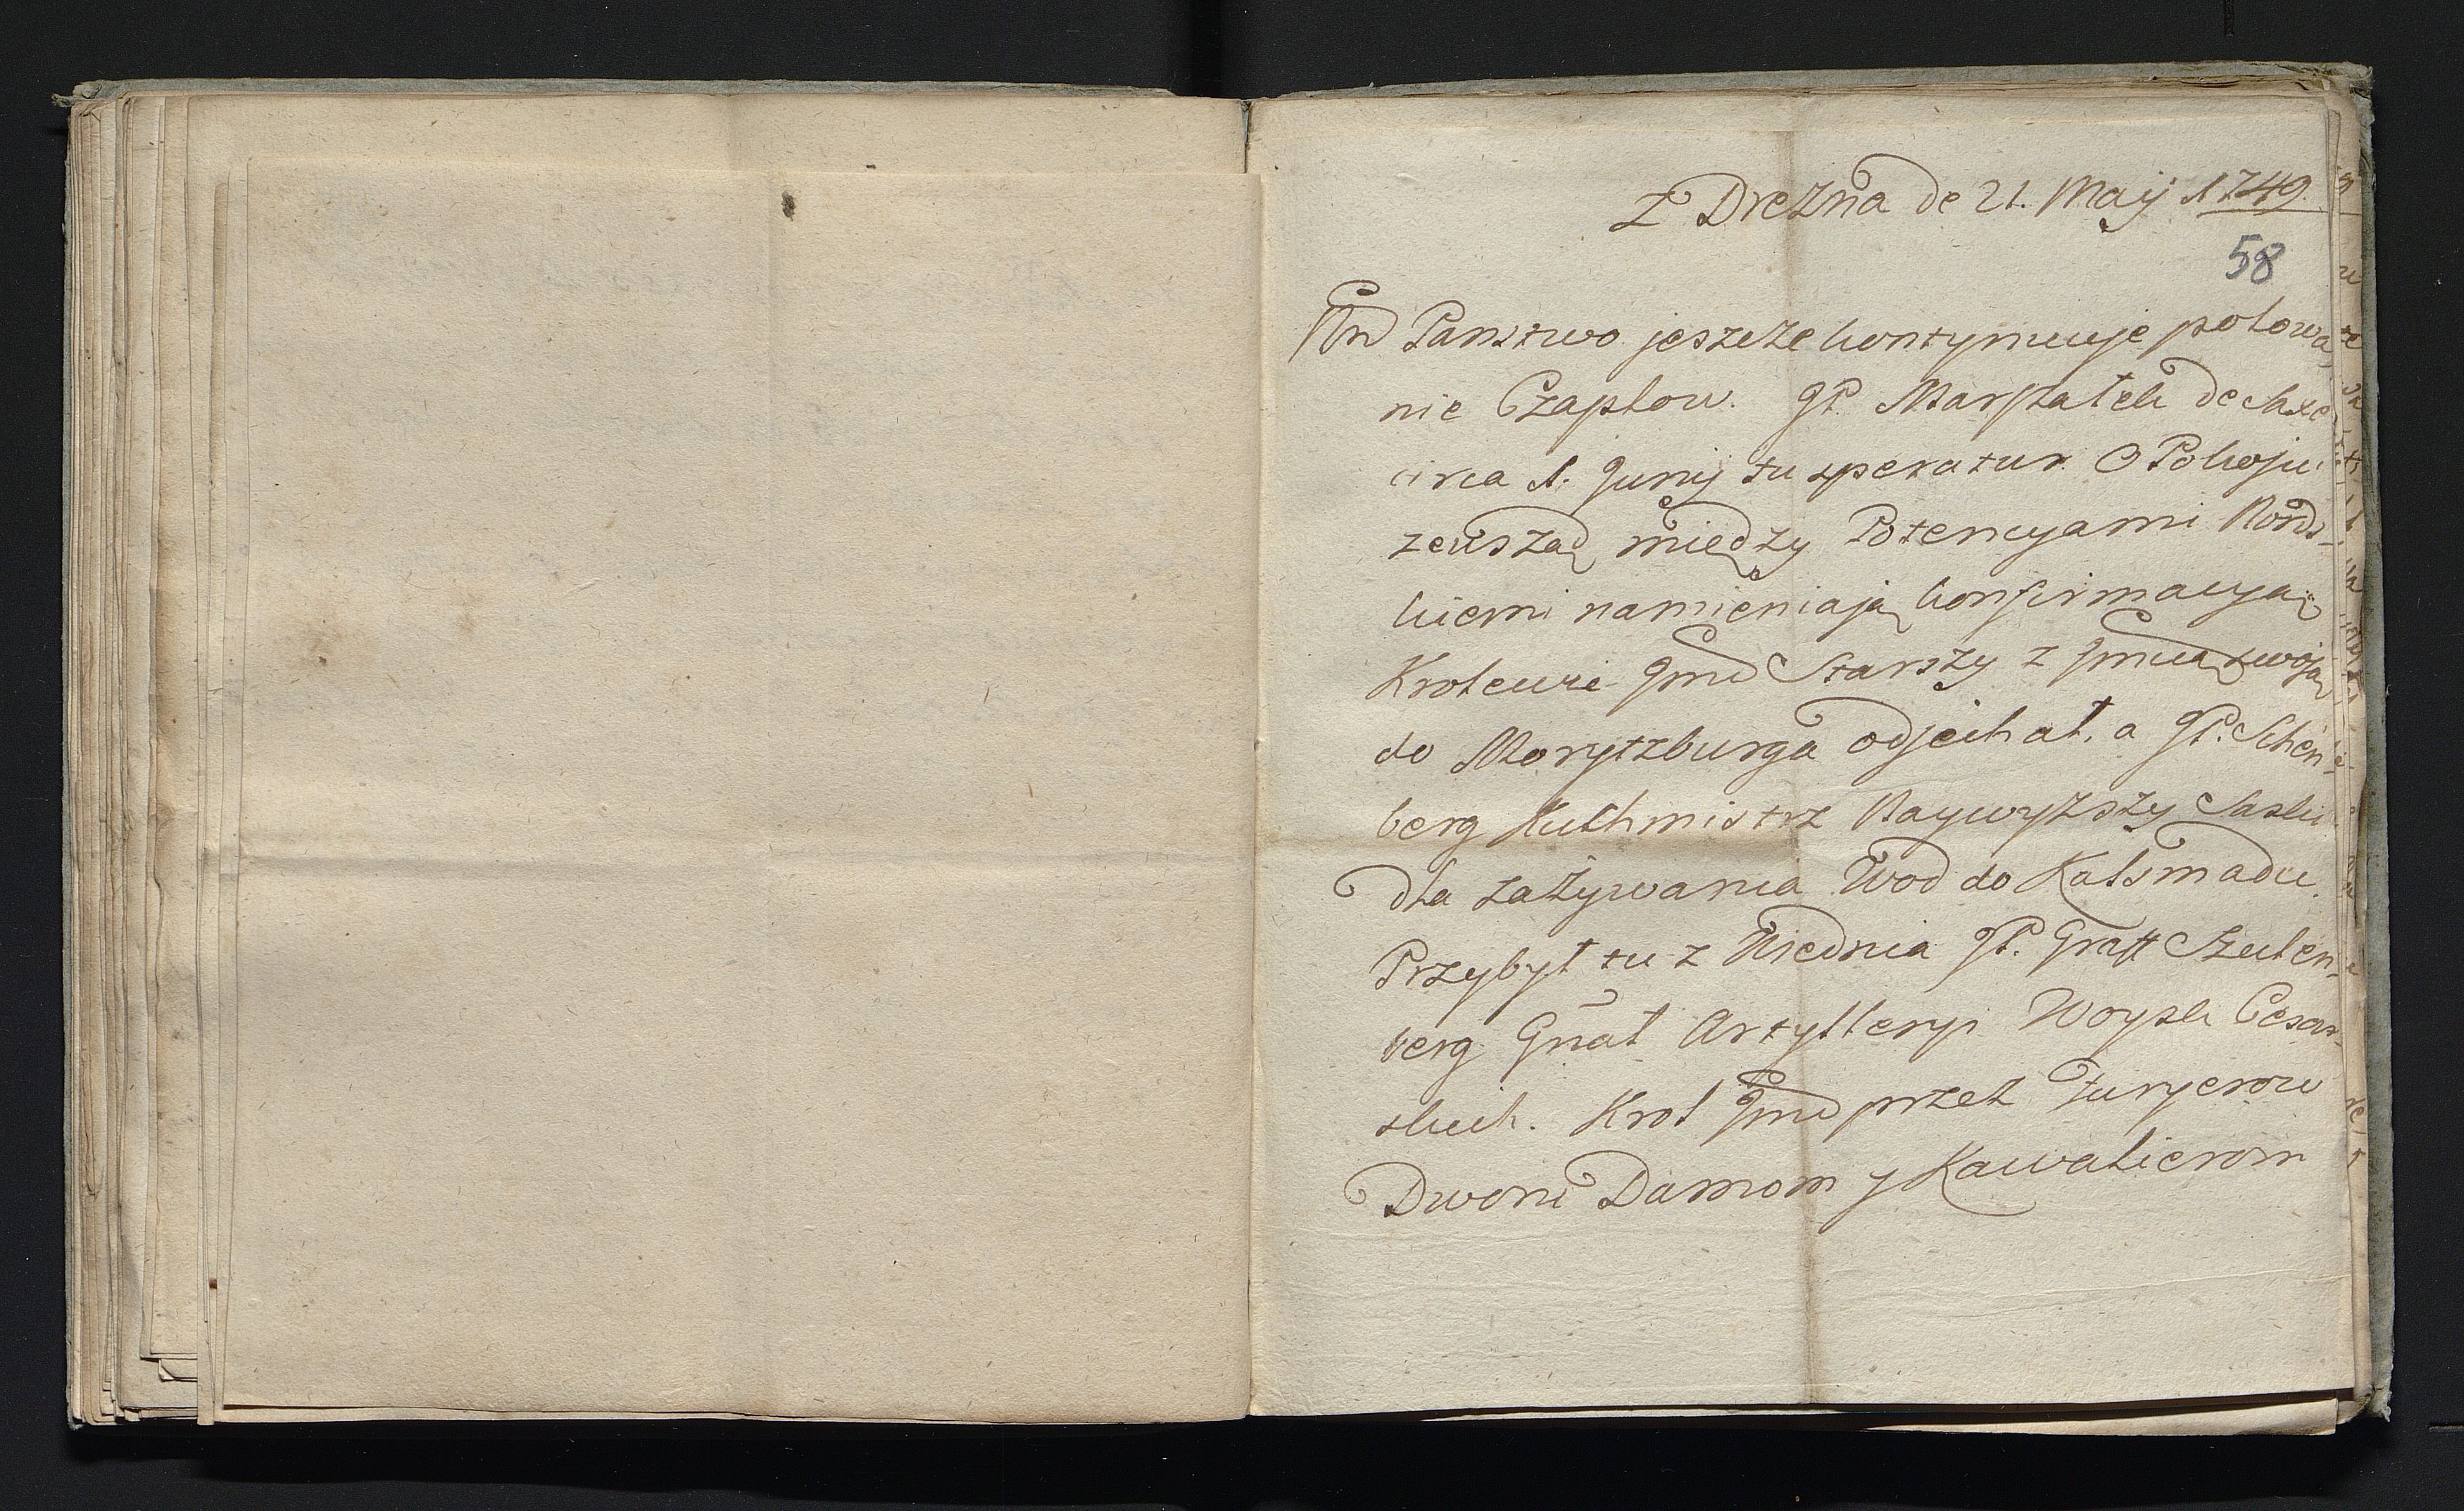 Z Drezna de 21. Maÿ 1749.
58
Pnd Panstwo jeszcze kontynuuje polowa
nie Czaplow. JP. Marszałek de Saxe
circa 1. Junij tu speratur. O Pokoju
zewsząd między Potencyami Nords-
kiemi namieniają konfirmacyą
Krolewic Jmć Starszy z Jmcią swoją
do Morytzburga odjechał. a JP. Schen-
berg Kuchmistrz Naywyższy Saski
dla zażywania Wod do Kalsmadu.
Przybył tu z Wiednia JP. Graff Szulen-
berg Gnał Artylleryi Woysk Cesar-
skich. Krol Jmć przez Furyerow
Dworu Damom y Kawalierom